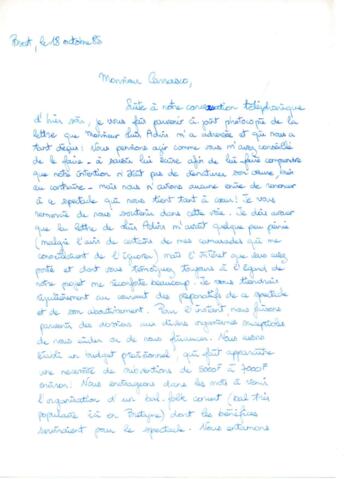 Brest, le 18 octobre 85
Monsieur Carrasco,
Suite à notre conversation téléphonique
d'hier soir, je vous fais parvenir ci joint photocopie de la
lettre que Monsieur Luis Adiris m'a adressée et qui nous a
tant déçus. Nous pensions agir comme vous m'avez conseillé
de le faire - à savoir lui écrire afin de lui faire comprendre
que notre intention n'était pas de dénaturer son œuvre, bien
au contraire - mais nous n'avons aucune envie de renoncer
à ce spectacle qui nous tient tant à cœur! Je vous
remercie de nous soutenir dans cette voie. Je dois avouer
que la lettre de Luis Adiris m'avait quelque peu peinée
(malgré l'avis de certains de mes camarades qui me
conseillaient de l'ignorer) mais l'intérêt que vous avez
porté et dont vous témoignez toujours à l'égard de
notre projet me réconforte beaucoup. Je vous tiendrai
régulièrement au courant des préparatifs de ce spectacle
et de son aboutissement. Pour l'instant nous faisons
parvenir des dossiers aux divers organismes susceptibles
de nous aider ou de nous financer. Nous avons
établi un budget prévisionnel qui fait apparaître
une nécessité de subventions de 5000F à 7000F
environ. Nous envisageons dans les mois à venir
l'organisation d'un bal-folk concert (bal très
populaire ici en Bretagne) dont les bénéfices
serviraient pour le spectacle. Nous entamons